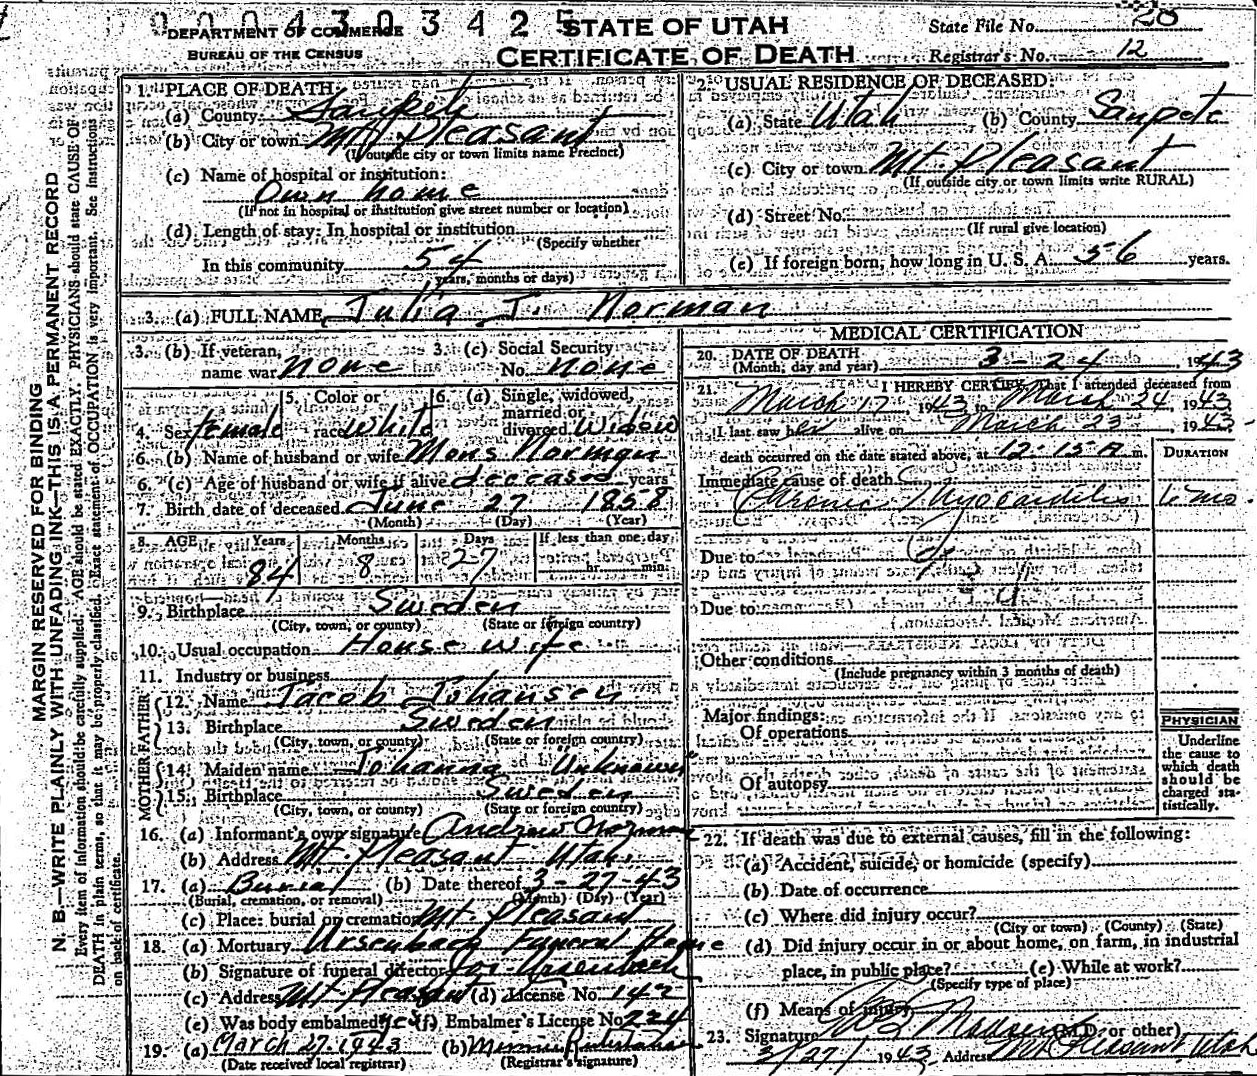 0004303425
DEPARTMENT OF COMMERCE
BUREAU OF THE CENSUS
STATE OF UTAH
CERTIFICATE OF DEATH
State File No. 20
Registrar's No. 12
MARGIN RESERVED FOR BINDING
N. B.—WRITE PLAINLY WITH UNFADING INK—THIS IS A PERMANENT RECORD
Every item of information should be carefully supplied. AGE should be stated EXACTLY. PHYSICIANS should state CAUSE OF
DEATH in plain terms, so that it may be properly classified. Exact statement of OCCUPATION is very important. See instructions
on back of certificate.
1. PLACE OF DEATH:
(a) County Sanpete
(b) City or town Mt Pleasant
(If outside city or town limits name Precinct)
(c) Name of hospital or institution:
Own home
(If not in hospital or institution give street number or location)
(d) Length of stay: In hospital or institution
(Specify whether
In this community 54
years, months or days)
2. USUAL RESIDENCE OF DECEASED
(a) State Utah (b) County Sanpete
(c) City or town Mt. Pleasant
(If outside city or town limits write RURAL)
(d) Street No.
(If rural give location)
(e) If foreign born, how long in U. S. A. 56 years.
3. (a) FULL NAME Julia J. Norman
3. (b) If veteran, name war none 3. (c) Social Security No. none
4. Sex female 5. Color or race white 6. (a) Single, widowed, married or divorced Widow
6. (b) Name of husband or wife Mons Norman
6. (c) Age of husband or wife if alive deceased years
7. Birth date of deceased June 27 1858
(Month) (Day) (Year)
8. AGE Years 84 Months 8 Days 27 If less than one day hr. min.
9. Birthplace Sweden
(City, town, or county) (State or foreign country)
10. Usual occupation House wife
11. Industry or business
FATHER
12. Name Jacob Johansen
13. Birthplace Sweden
(City, town, or county) (State or foreign country)
MOTHER
14. Maiden name Johanna Unknown
15. Birthplace Sweden
(City, town, or county) (State or foreign country)
16. (a) Informant's own signature Andrew Norman
(b) Address Mt. Pleasant Utah
17. (a) Burial (b) Date thereof 3-27-43
(Burial, cremation, or removal) (Month) (Day) (Year)
(c) Place: burial or cremation Mt Pleasant
18. (a) Mortuary Ursenbach Funeral Home
(b) Signature of funeral director Jos. Ursenbach
(c) Address Mt Pleasant (d) License No. 142
(e) Was body embalmed yes (f) Embalmer's License No 224
19. (a) March 27, 1943 (b)
(Date received local registrar) (Registrar's signature)
MEDICAL CERTIFICATION
20. DATE OF DEATH
(Month, day and year) 3-24 1943
21. I HEREBY CERTIFY, That I attended deceased from
March 17, 1943 to March 24, 1943
I last saw her alive on March 23, 1943
death occurred on the date stated above, at 12:15 A m.
DURATION
Immediate cause of death
Chronic Myocarditis 6 mo
Due to
Due to
Other conditions
(Include pregnancy within 3 months of death)
Major findings:
Of operations
Of autopsy
PHYSICIAN
Underline
the cause to
which death
should be
charged sta-
tistically.
22. If death was due to external causes, fill in the following:
(a) Accident, suicide, or homicide (specify)
(b) Date of occurrence
(c) Where did injury occur?
(City or town) (County) (State)
(d) Did injury occur in or about home, on farm, in industrial
place, in public place? (e) While at work?
(Specify type of place)
(f) Means of injury
23. Signature Madsen (M.D. or other)
3/27/1943 Address Mt Pleasant, Utah